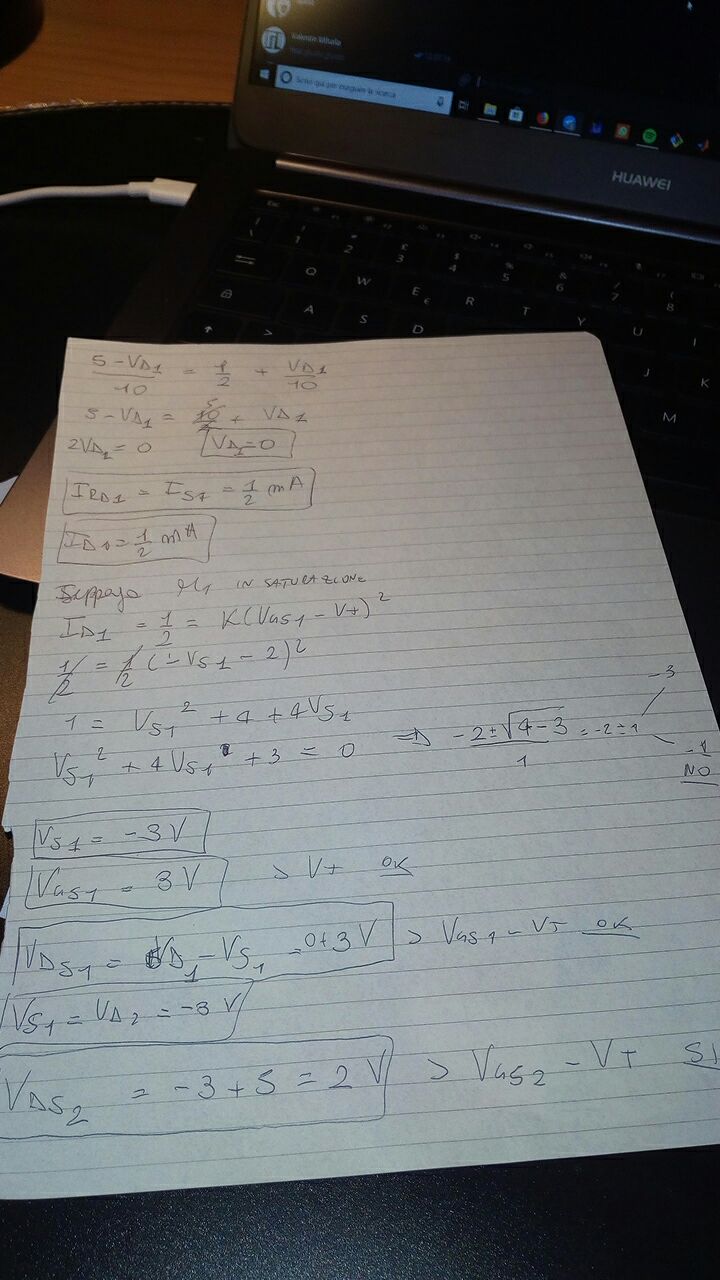 Scrivi qui per eseguire la ricerca
HUAWEI
1 2 3 4 5 6 7 8
£ $ % & / (
Q W E € R T Y U I
A S D J K
M
5 - VD1 / 10 = 1/2 + VD1 / 10
5 - VD1 = 10/2 5 + VD1
2VD1 = 0 VD1 = 0
IRD1 = IS1 = 1/2 mA
ID1 = 1/2 mA
Suppongo M1 IN SATURAZIONE
ID1 = 1/2 = K(VGS1 - VT)²
1/2 = 1/2 (-VS1 - 2)²
1 = VS1² + 4 + 4VS1
VS1² + 4VS1 + 3 = 0 => -2 ± √4-3 / 1 = -2 ± 1 -3 -1 NO
VS1 = -3 V
VGS1 = 3 V > VT OK
VDS1 = VD1 - VS1 = 0+3 V > VGS1 - VT OK
VS1 = VD2 = -3 V
VDS2 = -3 + 5 = 2 V > VGS2 - VT SI